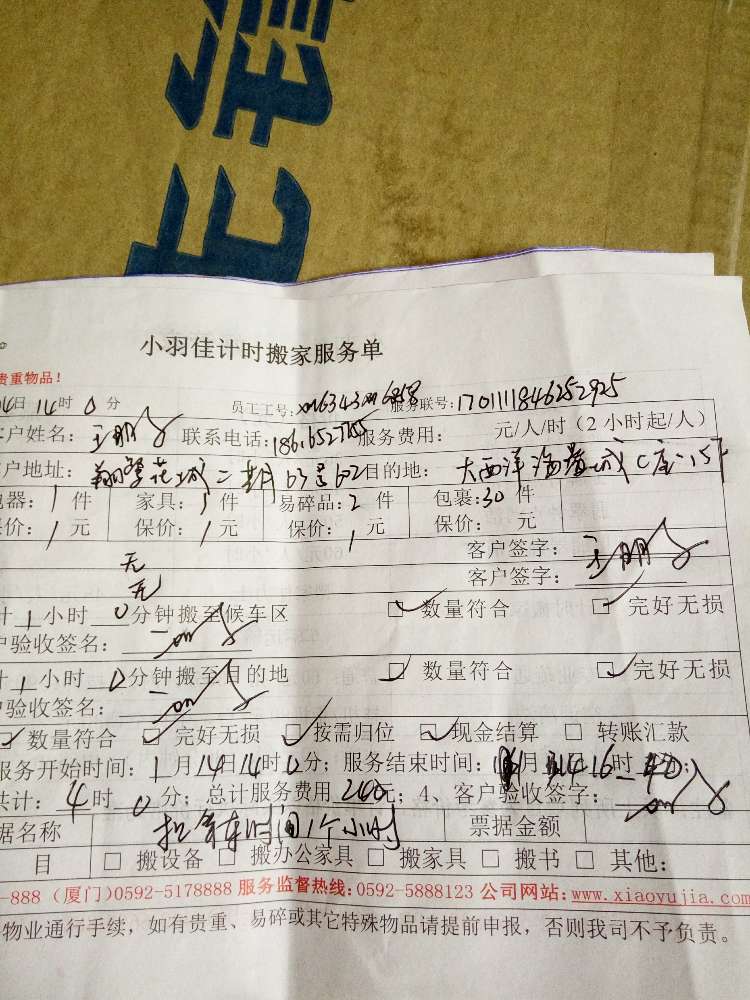 小羽佳计时搬家服务单
贵重物品！
14日14时0分 员工工号: 服务联号:1701111846252925
客户姓名: 王鹏 联系电话: 服务费用: 元/人/时（2小时起/人）
客户地址: 翔鹭花城二期63号602 目的地: 大西洋海景城C座
电器: 1件 家具: 1件 易碎品: 2件 包裹:30件
保价: 1元 保价: 1元 保价: 1元 保价: 元
无 客户签字: 王鹏
无 客户签字:
计1小时0分钟搬至候车区 ☑数量符合 ☑完好无损
户验收签名:
计1小时0分钟搬至目的地 ☑数量符合 ☑完好无损
户验收签名:
☑数量符合 ☑完好无损 ☑按需归位 ☑现金结算 □转账汇款
服务开始时间: 1月14日14时0分; 服务结束时间: 月14 16时
共计: 4时0分; 总计服务费用240元; 4、客户验收签字:
据名称 扣等车时间1个小时 票据金额
目 □搬设备 □搬办公家具 □搬家具 □搬书 □其他:
-888（厦门)0592-5178888 服务监督热线:0592-5888123 公司网站:www.xiaoyujia.com
物业通行手续，如有贵重、易碎或其它特殊物品请提前申报，否则我司不予负责。